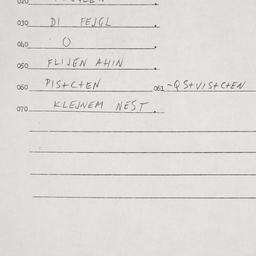 020
030 DI FEJGL
040 O
050 FLIJEN AHIN
060 PIS+C+EN 061 -QS+VIS+C+EN
070 KLEJNEM NEST.